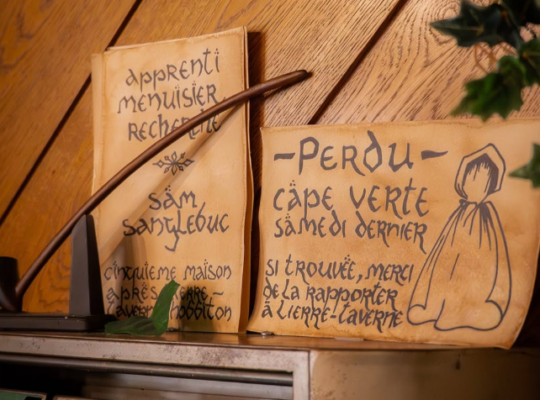 apprenti
menuisier
recherche
sam
sanglebuc
cinquieme maison
après lierre-
taverne hobbiton
-PERDU-
cape verte
samedi dernier
si trouvée, merci
de la rapporter
à lierre-taverne